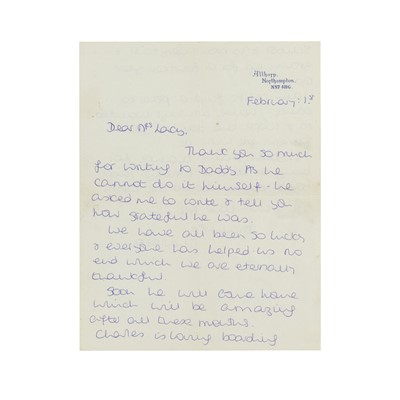 Althorp,
Northampton,
February - 1st
Dear Mrs Lacy,
Thank you so much
for writing to Daddy. As he
cannot do it himself - he
asked me to write & tell you
how grateful he was.
We have all been so lucky
& everyone has helped us no
end which we are eternally
thankful.
Soon he will come home
which will be amazing
after all these months.
Charles is loving boarding